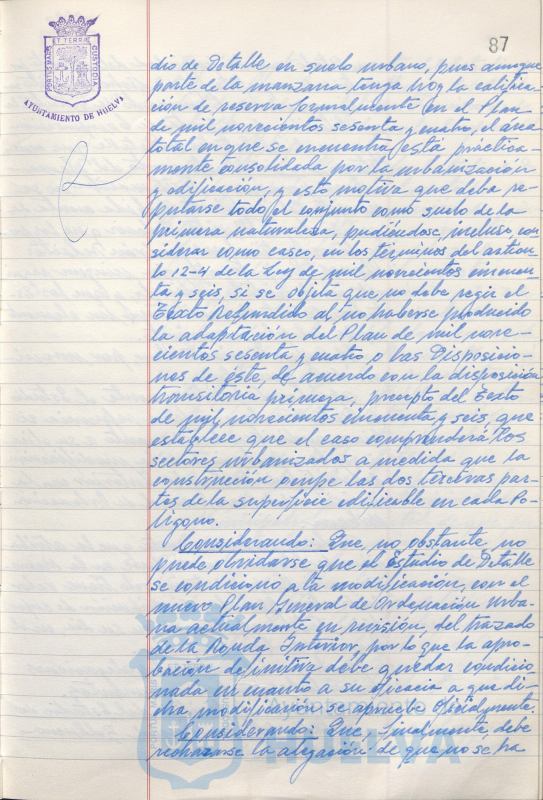 87
PORTUS MARIS ET TERRAE CUSTODIA
AYUNTAMIENTO DE HUELVA
dio de Detalle en suelo urbano, pues aunque
parte de la manzana tenga hoy la califica-
ción de reserva formalmente en el Plan
de mil novecientos sesenta y cuatro, el área
total en que se encuentra está práctica-
mente consolidada por la urbanización
y edificación, y esto motiva que deba re-
putarse todo el conjunto como suelo de la
primera naturaleza, pudiendose, incluso, con
siderar como casco, en los términos del artícu-
lo 12-4 de la Ley de mil novecientos cincuen-
ta y seis, si se objeta que no debe regir el
Texto Refundido al no haberse producido
la adaptación del Plan de mil nove-
cientos sesenta y cuatro o las Disposicio-
nes de éste, de acuerdo con la disposición
transitoria primera, precepto del Texto
de mil novecientos cincuenta y seis, que
establece que el caso comprenderá los
sectores urbanizados a medida que la
construcción ocupe las dos terceras par-
tes de la superficie edificable en cada Po-
lígono.
Considerando: Que, no obstante, no
puede olvidarse que el Estudio de Detalle
se condicionó a la modificación, con el
nuevo Plan General de Ordenación Urba-
na actualmente en revisión, del trazado
de la Ronda Interior, por lo que la apro-
bación definitiva debe quedar condicio
nada en cuanto a su eficacia a que di-
cha modificación se apruebe oficialmente.
Considerando: Que, finalmente, debe
rechazarse la alegación de que no se ha
HUELVA